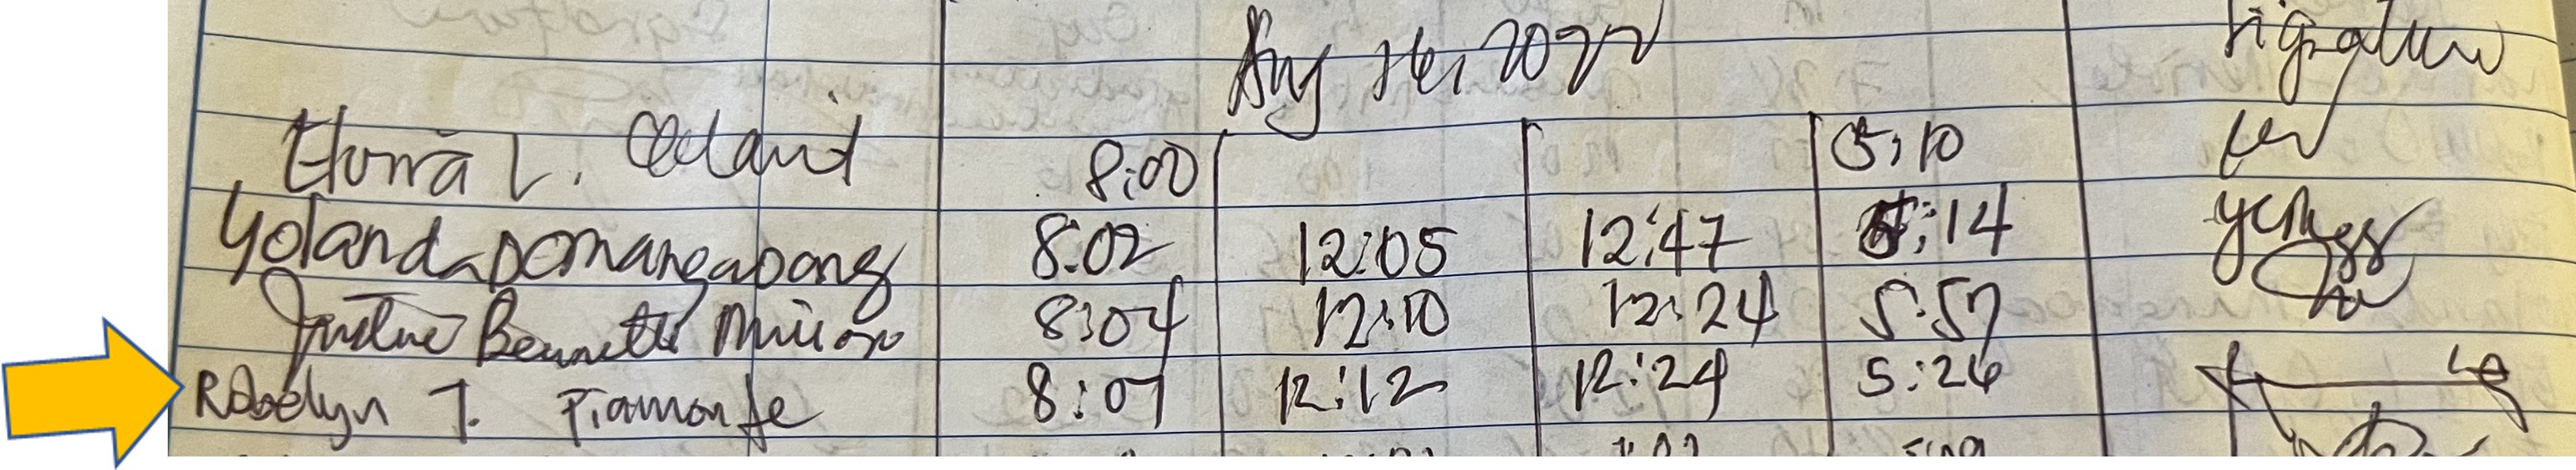 Signature
Aug 16, 2022
Elvira L. 8:00 5:10
Yolanda Domangabong 8:02 12:05 12:47 5:14
Justine Bennette 8:04 12:10 12:24 5:57
Robelyn T. Piamonte 8:07 12:12 12:24 5:26